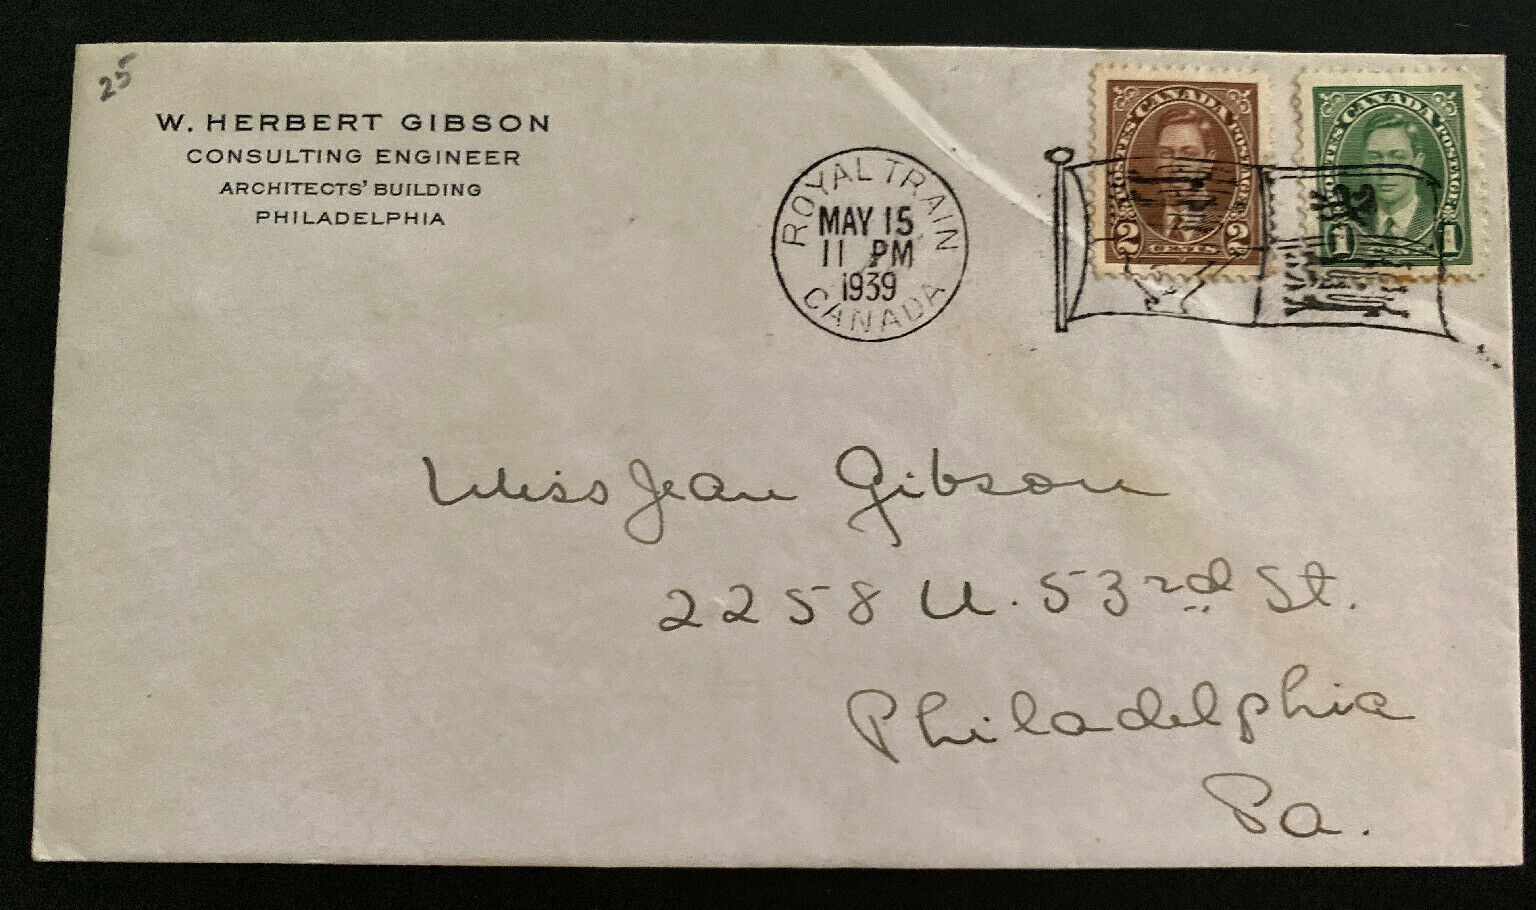 25
W. HERBERT GIBSON
CONSULTING ENGINEER
ARCHITECTS' BUILDING
PHILADELPHIA
ROYAL TRAIN
MAY 15
11 PM
1939
CANADA
POSTES CANADA POSTAGE
2 CENTS 2
POSTES CANADA POSTAGE
1 1
Miss Jean Gibson
2258 N. 53rd St.
Philadelphia
Pa.